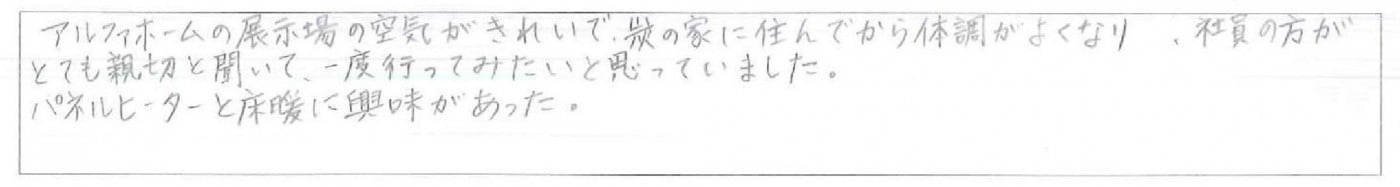 アルファホームの展示場の空気がきれいで、炭の家に住んでから体調がよくなり 、社員の方が
とても親切と聞いて、一度行ってみたいと思っていました。
パネルヒーターと床暖に興味があった。